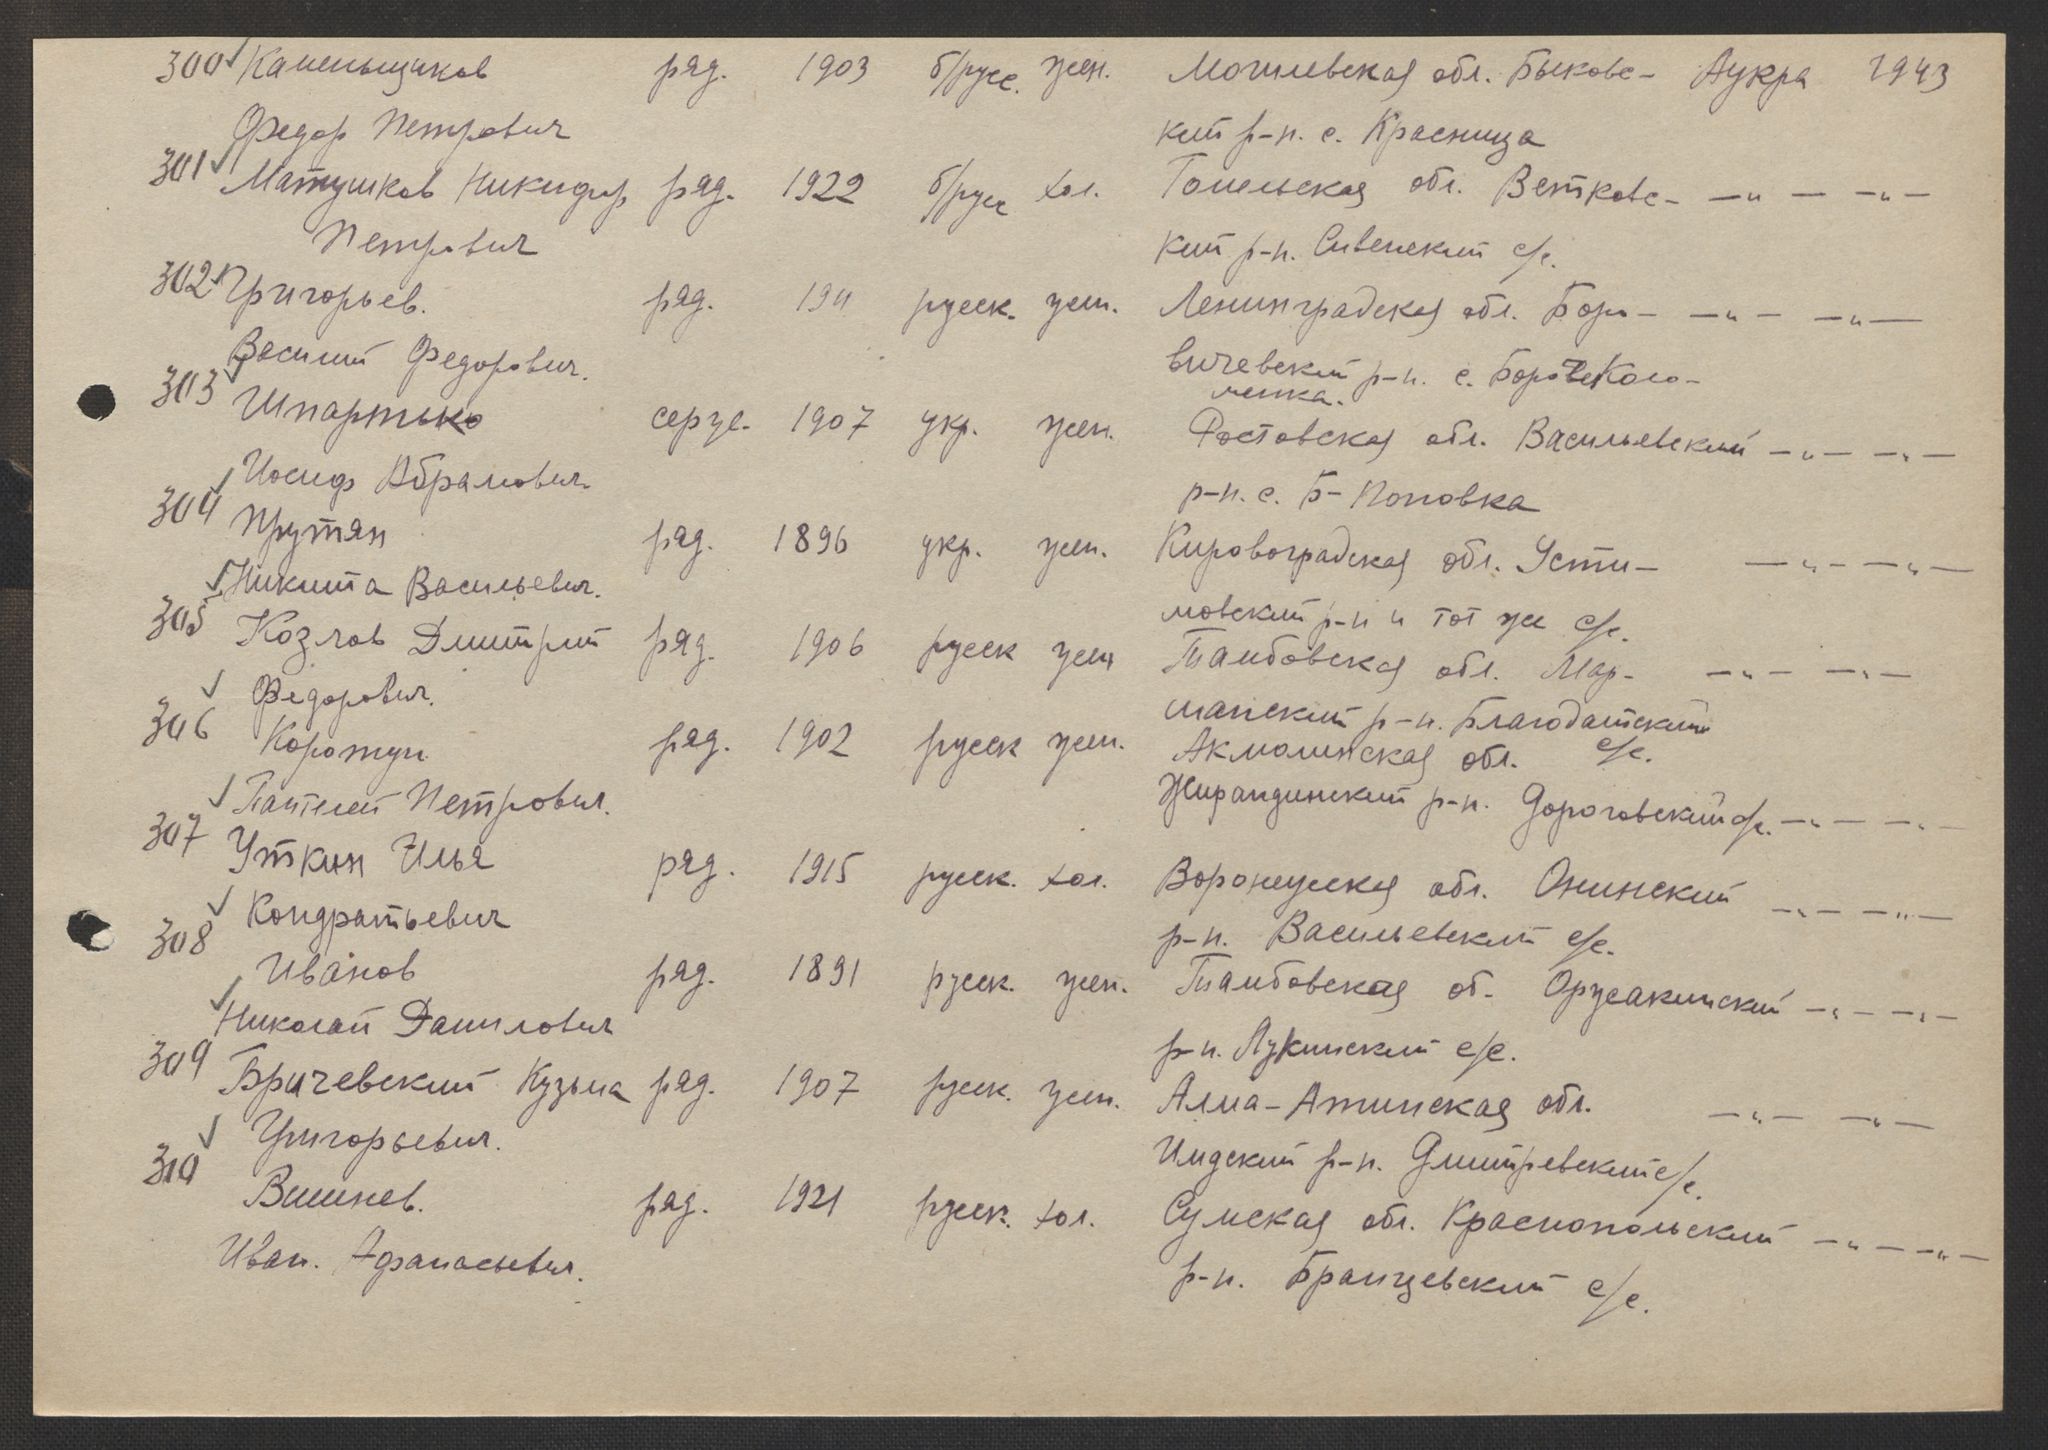 300 Каменьщиков ряд. 1903 б/русс. жен. Могилевская обл. Быховс- Аукра 1943
Федор Петрович кий р-н. с. Красница
301 Матушков Никифор ряд. 1922 б/русс хол. Гомельская обл. Ветковс- —„— —„—
Петрович кий р-н. Сивенский с/с.
302 Григорьев. ряд. 1911 русск. жен. Ленинградская обл. Боро- —„— —„—
Василий Федорович. вичевский р-н. с.
303 Шпартько серж. 1907 укр. жен. Ростовская обл. Васильевский —„— —„—
Иосиф Абрамович. р-н. с. Б-Поповка
304 Прутян ряд. 1896 укр. жен. Кировоградская обл. Усти- —„— —„—
Никита Васильевич. мовский р-н и тот же с/с.
305 Козлов Дмитрий ряд. 1906 русск жен Тамбовская обл. Мар- —„— —„—
Федорович. шанский р-н. Благодатский с/с.
306 Коротун ряд. 1902 русск жен. Акмолинская обл.
Пантелей Петрович. р-н. Дороговский с/с. —„— —„—
307 Уткин Илья ряд. 1915 русск. хол. Воронежская обл. Онинский —„— —„—
Кондратьевич р-н. Васильевский с/с.
308 Иванов ряд. 1891 русск. жен. Тамбовская об. —„— —„—
Николай Данилович р-н. Лукинский с/с.
309 Бричевский Кузьма ряд. 1907 русск. жен. Алма-Атинская обл. —„— —„—
Григорьевич. р-н. Дмитревский с/с.
310 Вишнев. ряд. 1921 русск. хол. Сумская обл. Краснопольский —„— —„—
Иван. Афанасьевич. р-н. Бранцевский с/с.